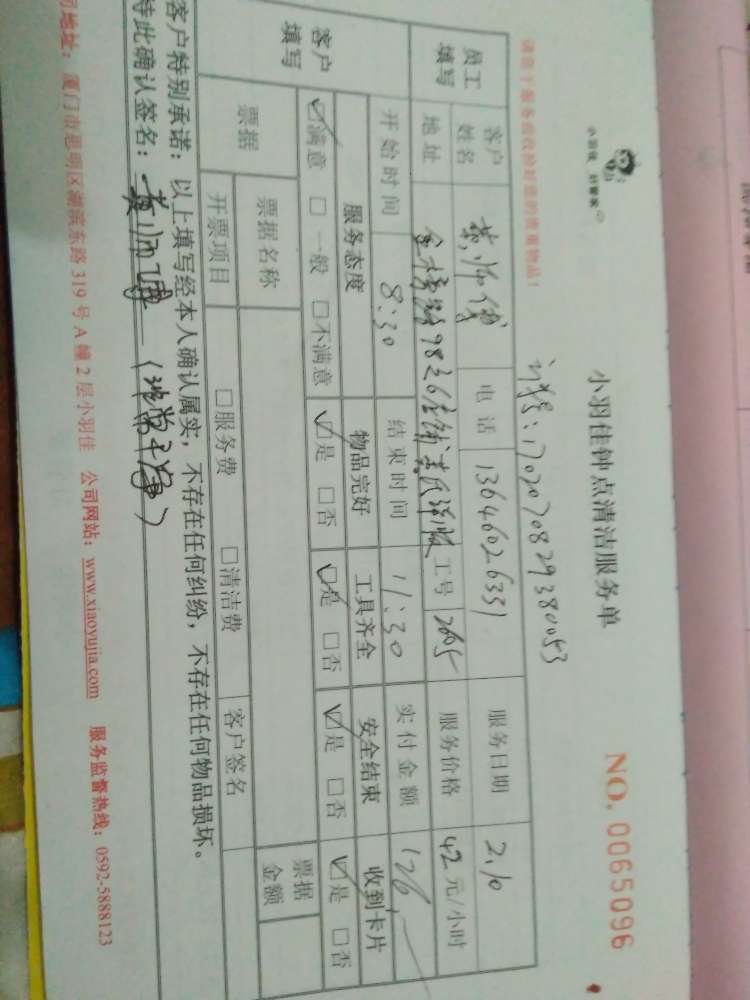 小羽佳 好管家
小羽佳钟点清洁服务单
NO. 0065096
订单号:1702070829380053
员工填写
客户姓名 电话 13646026331 服务日期 2.10
地址 金榜路98 工号 2605 服务价格 42 元/小时
客户填写
开始时间 8:30 结束时间 11:30 实付金额 126
服务态度 物品完好 工具齐全 安全结束 收到卡片
☑满意 □一般 □不满意 ☑是 □否 ☑是 □否 ☑是 □否 ☑是 □否
票据 票据名称 票据金额
开票项目 □服务费 □清洁费 客户签名
客户特别承诺:以上填写经本人确认属实,不存在任何纠纷,不存在任何物品损坏。
特此确认签名:
地址:厦门市思明区湖滨东路319号A幢2层小羽佳 公司网站:www.xiaoyujia.com 服务监督热线:0592-5888123